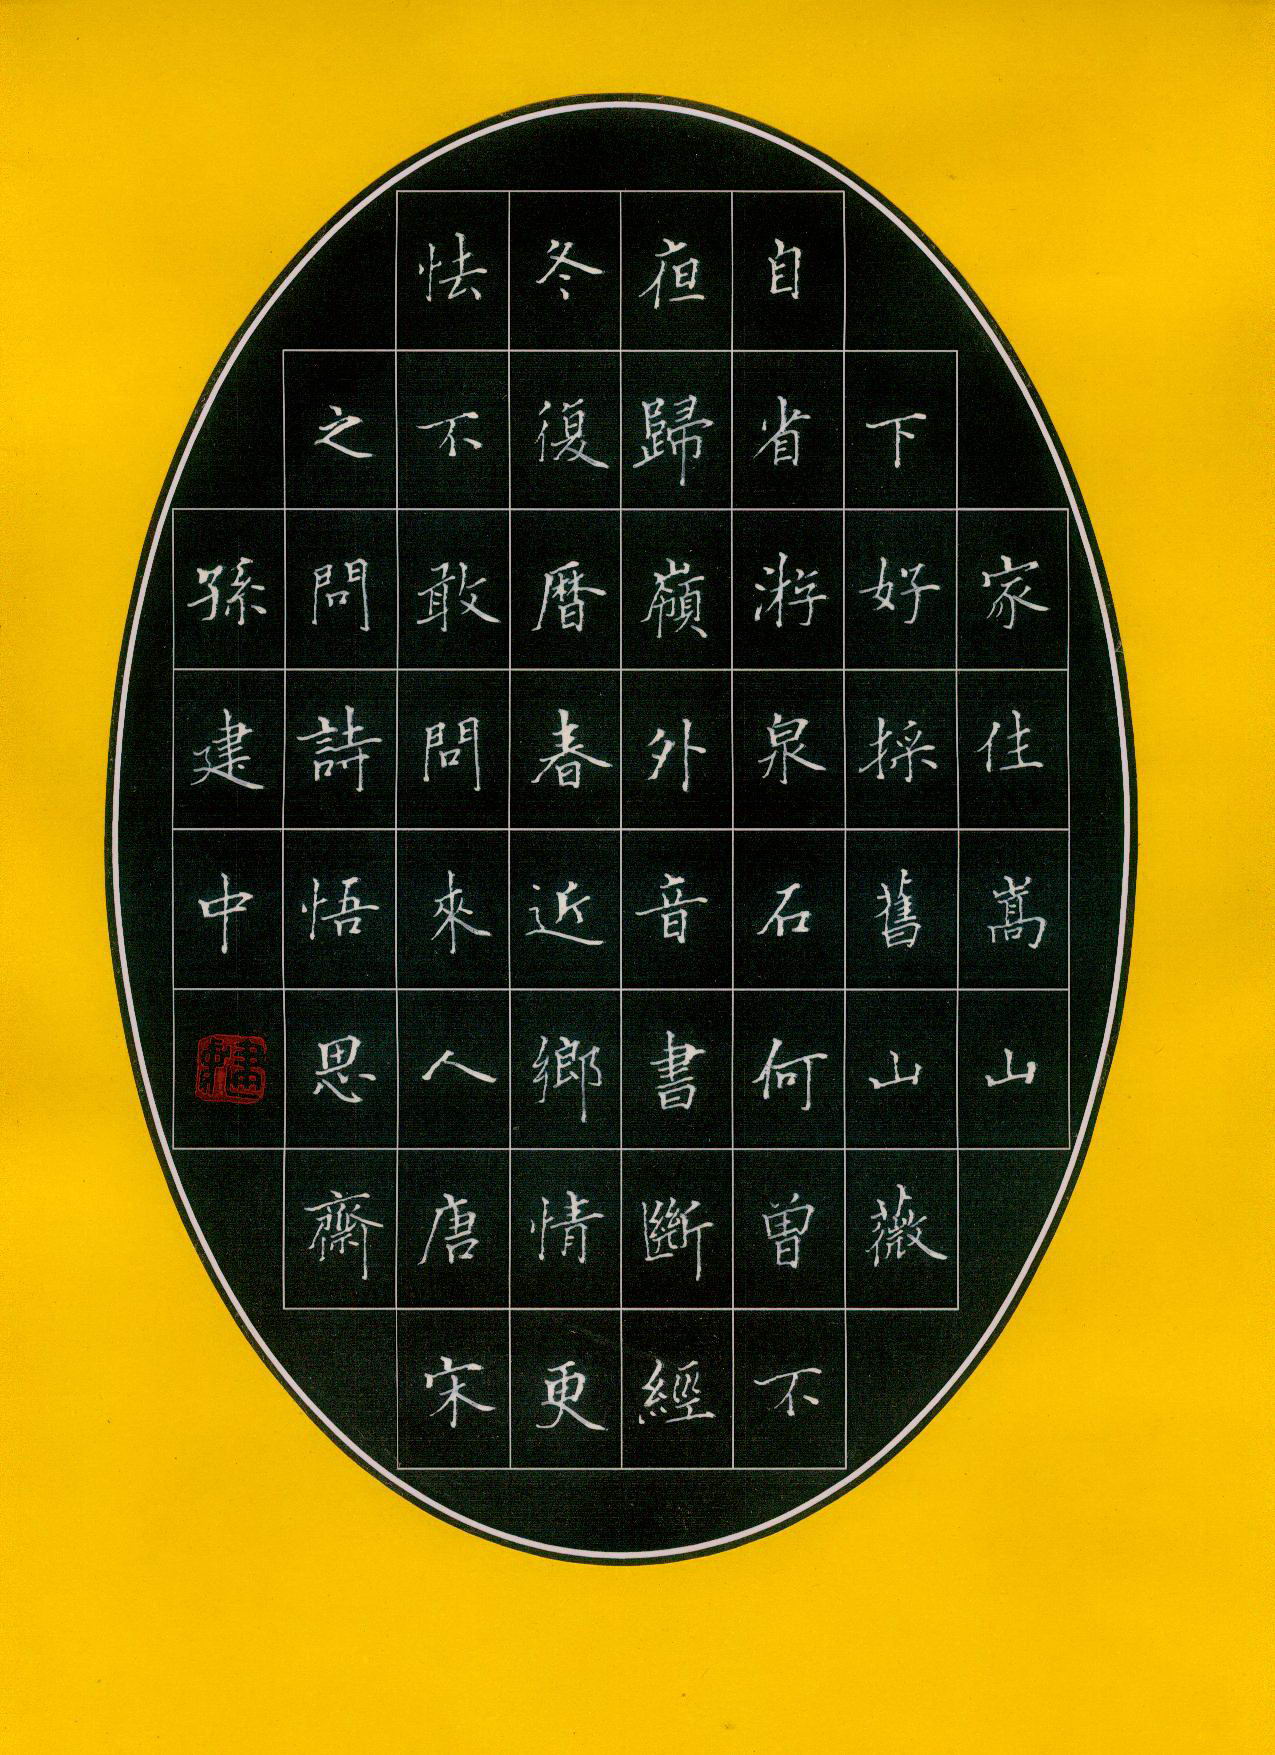 家住嵩山
下好採舊山薇
自省游泉石何曾不
亱歸嶺外音書斷經
冬復曆春近鄉情更
怯不敢問來人唐宋
之問詩悟思齋
孫建中